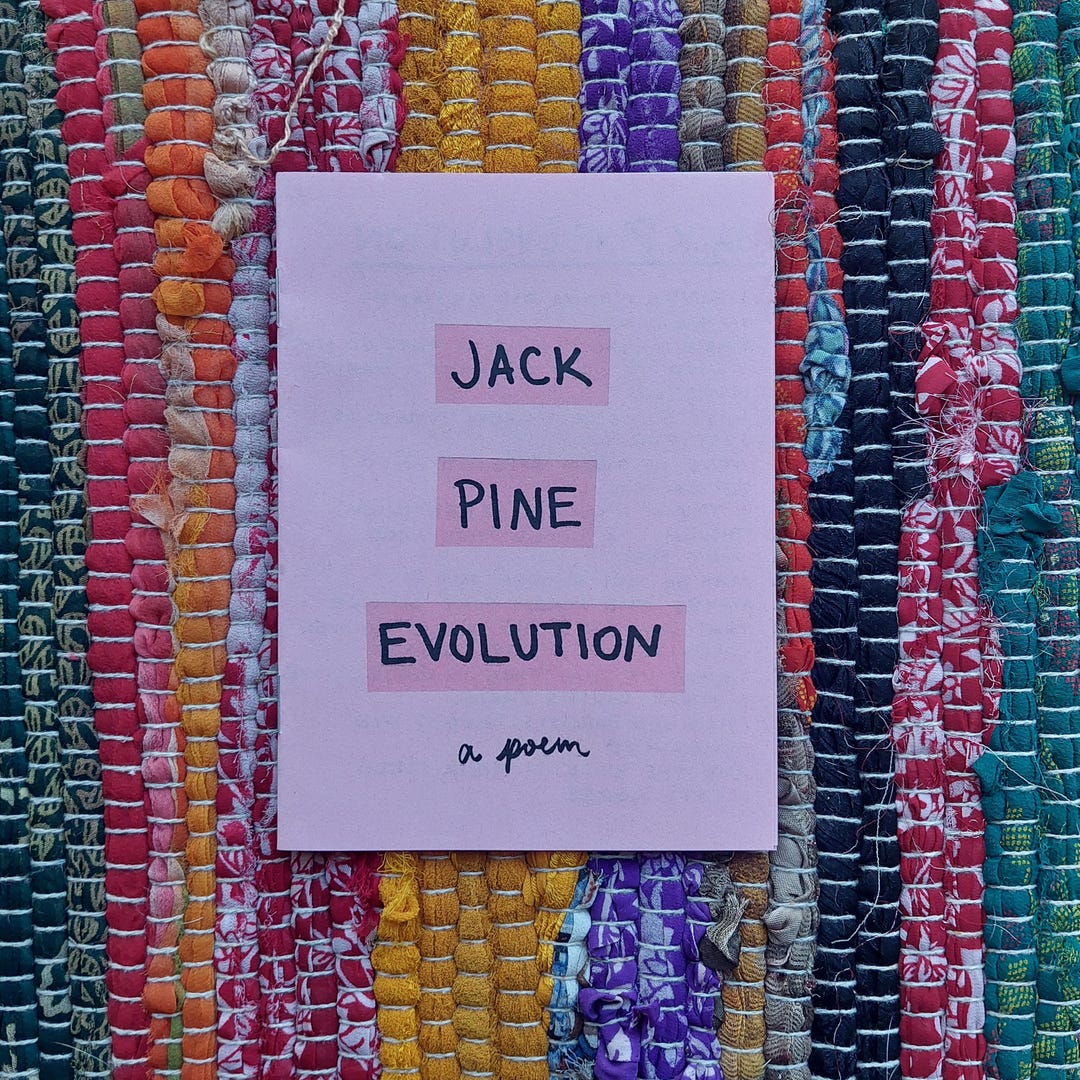 JACK
PINE
EVOLUTION
a poem